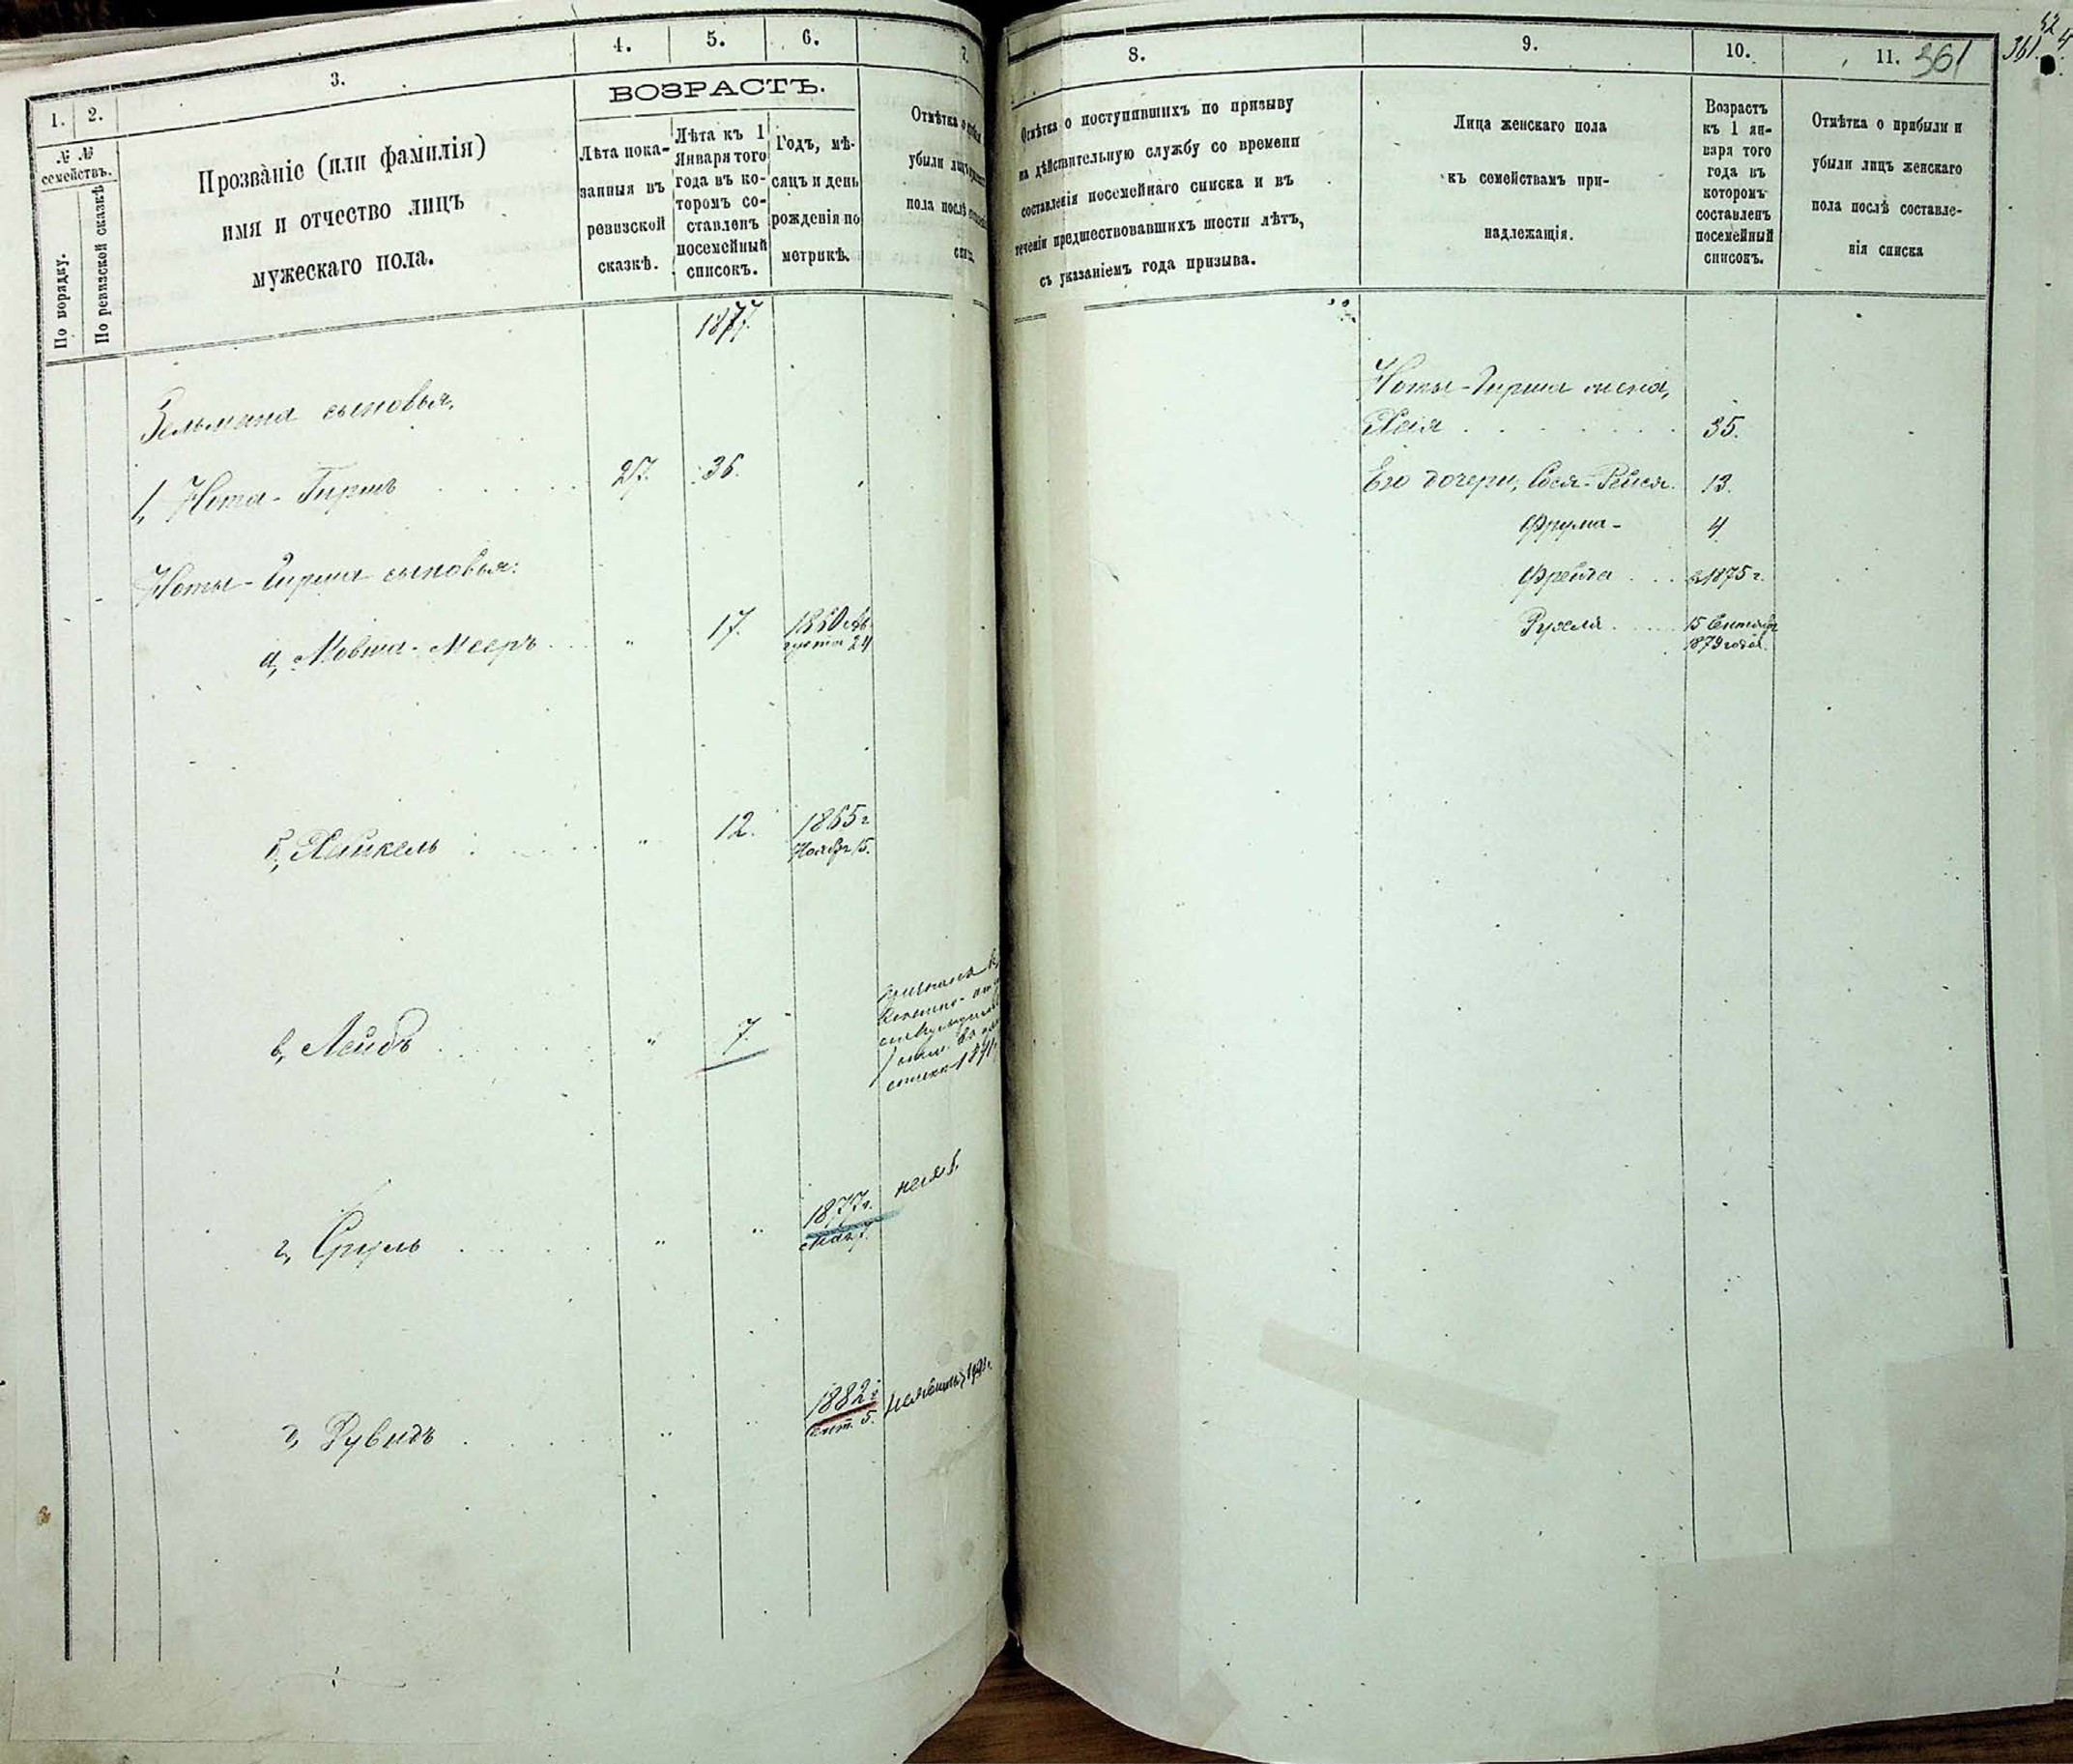 1.
2.
3.
4.
5.
6.
7.
№ №
семействъ.
По порядку.
По ревизской сказкѣ
Прозваніе (или фамилія)
имя и отчество лицъ
мужескаго пола.
ВОЗРАСТЪ.
Лѣта пока-
занныя въ
ревизской
сказкѣ.
Лѣта къ 1
Января того
года въ ко-
торомъ со-
ставленъ
посемейный
списокъ.
Годъ, мѣ-
сяцъ и день
рожденія по
метрикѣ.
Отмѣтка о
убыли лицъ
пола послѣ
1877.
Зельмана сыновья,
1, Нота-Гиршъ 27. 36.
Ноты-Гирша сыновья:
а, Мовша-Мееръ " 17. 1860 Ав-
густа 24
б, Хайкель " 12. 1865 г
Ноябр 15.
в, Лейбъ " 7.
списки 1891
г, Сруль " " 1877 г.
д, Рувидъ " " 1882 г
Сент. 5.
8.
9.
10.
11. 361
361.
Отмѣтка о поступившихъ по призыву
на дѣйствительную службу со времени
составленія посемейнаго списка и въ
теченіи предшествовавшихъ шести лѣтъ,
съ указаніемъ года призыва.
Лица женскаго пола
къ семействамъ при-
надлежащія.
Возрастъ
къ 1 ян-
варя того
года въ
которомъ
составленъ
посемейный
списокъ.
Отмѣтка о прибыли и
убыли лицъ женскаго
пола послѣ составле-
нія списка
Ноты-Гирша жена,
Хая 35.
Его дочери, Сося-Рейся. 13.
Фрума- 4
Фрейда 1875 г.
Рухля 15 Сентябр
1879 года.